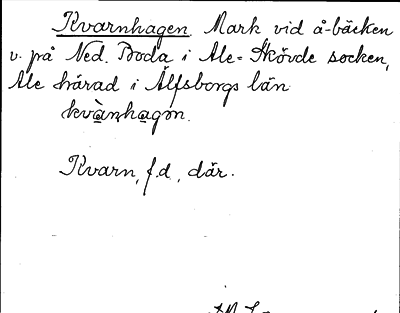 Kvarnhagen. Mark vid å-bäcken
v. på Ned. Boda i Ale-Skövde socken,
Ale härad i Älfsborgs län.
kvànhagon.
Kvarn, f.d., där.